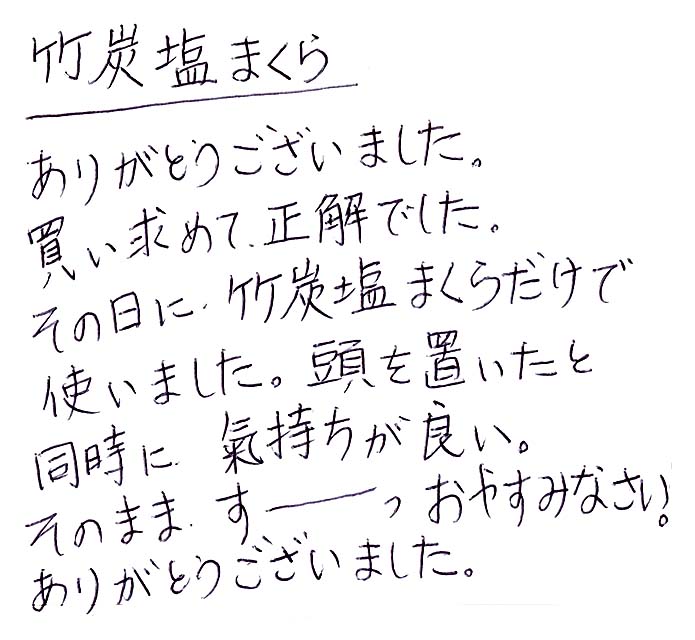 竹炭塩まくら
ありがとうございました。
買い求めて、正解でした。
その日に、竹炭塩まくらだけで
使いました。頭を置いたと
同時に、氣持ちが良い。
そのまま、すーーっ おやすみなさい!
ありがとうございました。